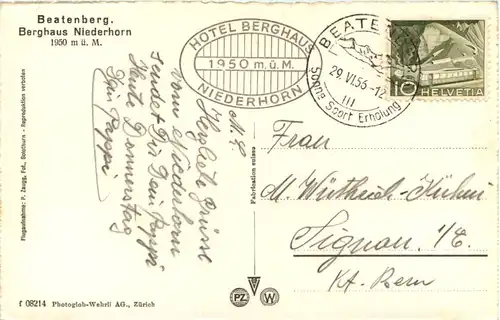 Beatenberg.
Berghaus Niederhorn
1950 m ü. M.
HOTEL BERGHAUS
1950 m. ü. M.
NIEDERHORN
BEATENBERG
29.VI.56-12
III
Sonne Sport Erholung
10 HELVETIA
M. L.
Herzliche Grüsse
vom Niederhorn
sendet Dir Dein Pappi
Heute Donnerstag
Dein Pappi
Frau
M. Wüthrich-Kühni
Signau i/E.
Kt. Bern
Flugaufnahme: P. Zaugg, Fot., Solothurn - Reproduktion verboten
Fabrication suisse
f 08214 Photoglob-Wehrli AG., Zürich
PZ W